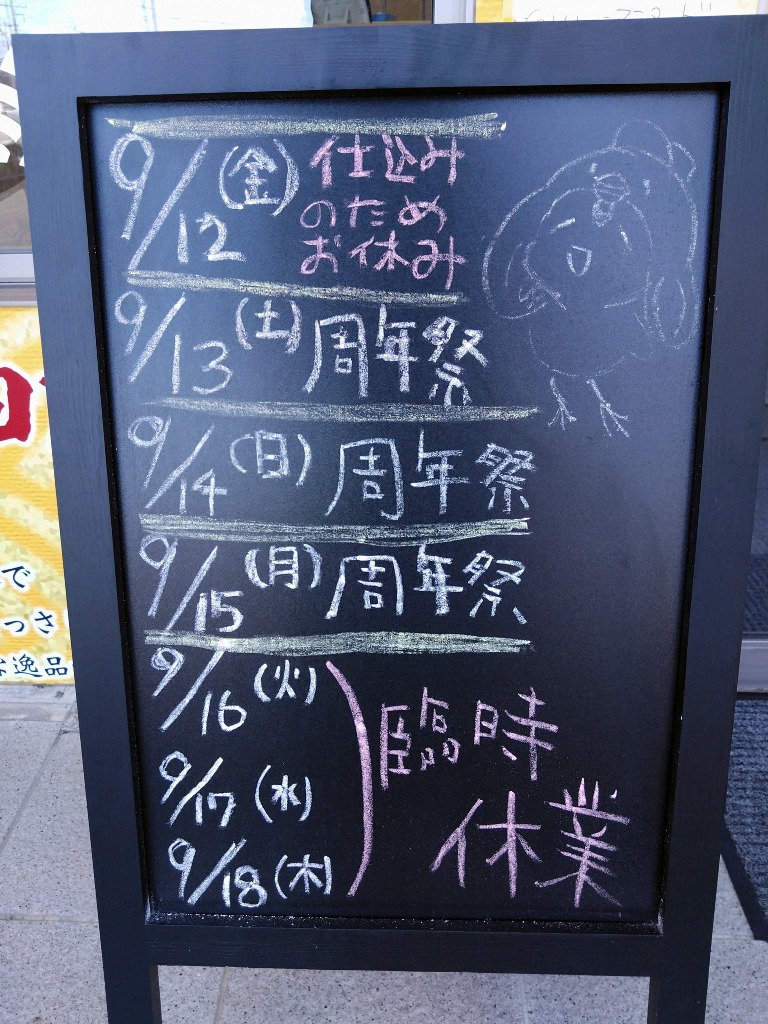 9/12(金) 仕込み
のため
お休み
9/13(土) 周年祭
9/14(日) 周年祭
9/15(月) 周年祭
9/16(火)
9/17(水)
9/18(木)
臨時
休業
で
っさ
逸品